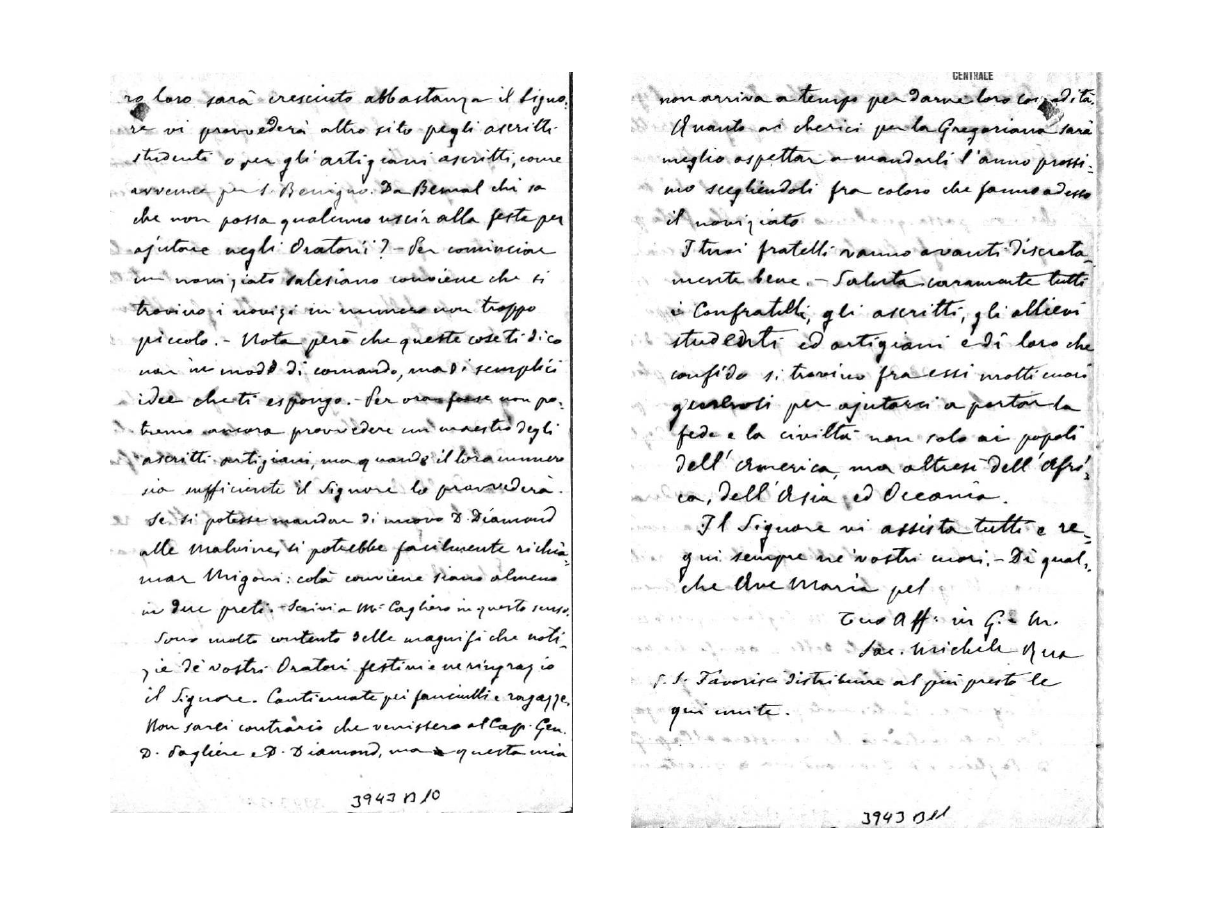 ro loro sarà cresciuto abbastanza il Signo-
re vi provvederà altro sito pegli ascritti
studenti o per gli artigiani ascritti, come
avvenne per S. Benigno. Da Bernal chi sa
che non possa qualcuno uscir alla festa per
ajutare negli Oratorii? - Per cominciare
un noviziato salesiano conviene che si
trovino i novizi in numero non troppo
piccolo. - Nota però che queste cose ti dico
non in modo di comando, ma di semplici
idee che ti espongo. - Per ora forse non po-
tremo ancora provvedere un maestro degli
ascritti artigiani, ma quando il loro numero
sia sufficiente il Signore lo provvederà.
Se si potesse mandar di nuovo D. Diamond
alle Malvine, si potrebbe facilmente richia-
mar Migoni: colà conviene siano almeno
in due preti. - Scrivi a Mr Cagliero in questo senso.
Sono molto contento delle magnifiche noti-
zie de' vostri Oratori festivi e ne ringrazio
il Signore. Continuate pei fanciulli e ragazze.
Non sarei contrario che venissero al Cap. Gen.
D. e D. Diamond, ma questa mia
3943 B 10
CENTRALE
non arriva a tempo per darne loro
Quanto ai cherici per la Gregoriana sarà
meglio aspettar a mandarli l'anno prossi-
mo scegliendoli fra coloro che fanno adesso
il noviziato
I tuoi fratelli vanno avanti discreta-
mente bene. - Saluta caramente tutti
i Confratelli, gli ascritti, gli allievi
studenti ed artigiani e dì loro che
confido si trovino fra essi molti cuori
generosi per ajutarci a portar la
fede e la civiltà non solo ai popoli
dell'America, ma altresì dell'Afri-
ca, dell'Asia ed Oceania.
Il Signore vi assista tutti e re-
gni sempre ne' vostri cuori. - Di' qual-
che Ave Maria pel
Tuo Aff. in G. e M.
Sac. Michele Rua
P.S. Favorisci distribuire al più presto le
qui unite.
3943 B 11